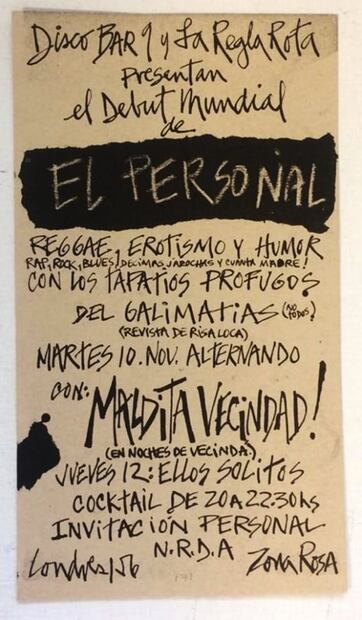 Disco BAR 9 y La Regla Rota
presentan
el Debut Mundial
de
EL PERSONAL
REGGAE, EROTISMO Y HUMOR
RAP, ROCK, BLUES! DECIMAS, JAROCHAS Y CUANTA MADRE!
CON LOS TAPATIOS PROFUGOS
DEL GALIMATIAS (NO TODOS?)
(REVISTA DE RISA LOCA)
MARTES 10. NOV. ALTERNANDO
CON: MALDITA VECINDAD!
(EN NOCHES DE VECINDA.)
JUEVES 12: ELLOS SOLITOS
COCKTAIL DE 20 A 22.30 hs
INVITACIÓN PERSONAL
N.R.D.A
Londres 156 Zona ROSA